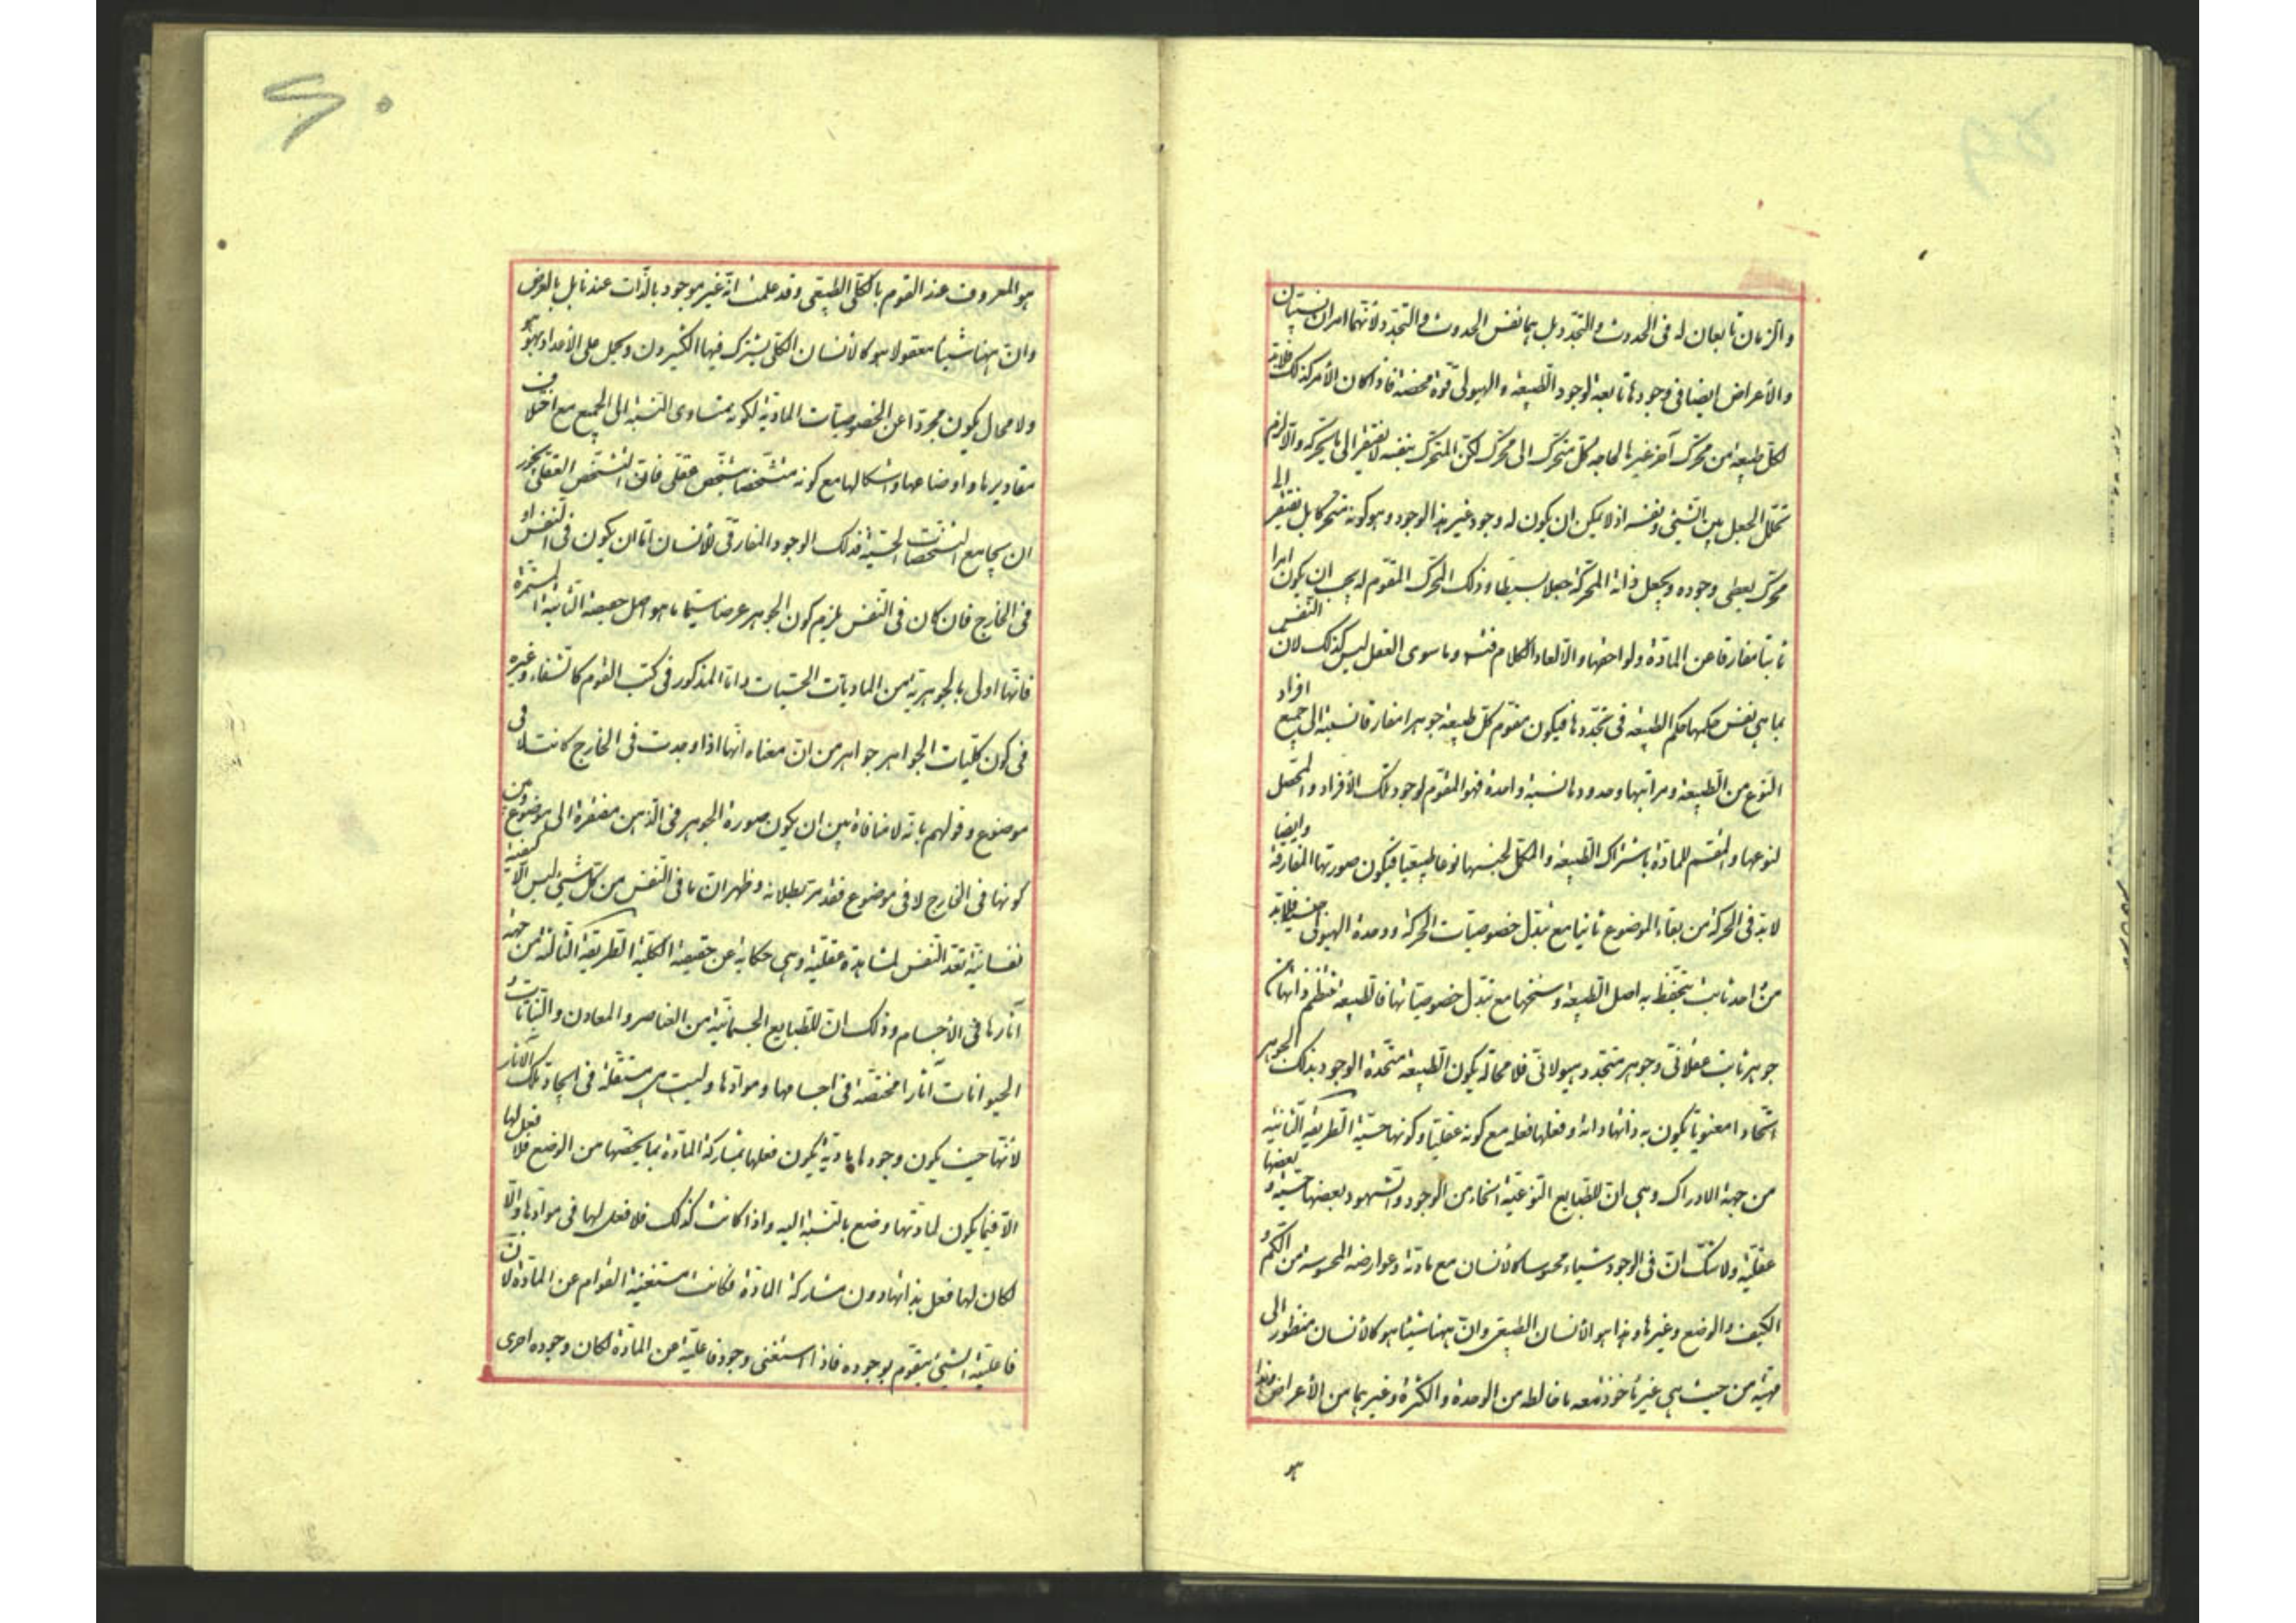 والزمان تابعان له فی الحدوث والتجدّد بل هما نفس الحدوث والتجدد لأنهما امران نسبیان
والأعراض ایضا فی وجودها تابعة لوجود الطبیعة والهیولی قوة محضة فاذا کان الأمر کذلک فلابد
لکل طبیعة من محرّک آخر غیرها لحاجة کل متحرک الی محرّک لکن المتحرک بنفسه لا یفتقر الی ما یحرکه والّا لزم
تخلّل الجعل بین الشیئ ونفسه اذ لا یمکن ان یکون له وجود غیر هذا الوجود وهو کونه متحرکا بل یفتقر الی
محرّک یعطی وجوده ویجعل ذاته المتحرکة جعلا بسیطا وذلک المحرّک المقوّم له یجب ان یکون امرا
ثابتا مفارقا عن المادّة ولواحقها والّا لعاد الکلام فیه وما سوی العقل لیس کذلک لان النفس
بما هی نفس حکمها حکم الطبیعة فی تجدّدها فیکون مقوّم کل طبیعة جوهرا مفارقا نسبته الی جمیع افراد
النوع من الطبیعة ومراتبها وحدودها نسبة واحدة فهو المقوّم لوجود تلک الأفراد والمحصّل
لنوعها والمقسم للمادّة باشتراک الطبیعة والمکمّل لجنسها نوعا طبیعیا فیکون صورتها المفارقة وایضا
لابدّ فی الحرکة من بقاء الموضوع ثانیا مع تبدّل خصوصیات الحرکة ووحدة الهیولی ضعیفة فلابدّ
من امر ثابت ینحفظ به اصل الطبیعة وسنخها مع تبدل خصوصیاتها فالطبیعة تنتظم ذاتها من
جوهر ثابت عقلانی وجوهر متجدد هیولانی فلا محالة یکون الطبیعة متّحدة الوجود بذلک الجوهر
اتّحادا معنویا یکون به ذاتها ذاته وفعلها فعله مع کونه عقلیا وکونها حسیة الطریقة الثانیة
من جهة الادراک وهی ان للطبایع النوعیة انحاء من الوجود والشهود بعضها حسیة وبعضها
عقلیة ولا شک انّ فی الوجود شیاء محسوسا کالأنسان مع مادته وعوارضه المحسوسة من الکم و
الکیف والوضع وغیرها وهذا هو الأنسان الطبیعی وانّ ههنا شیئا هو کالأنسان منظورا الی
مهیته من حیث هی غیر مأخوذ معه ما خالطه من الوحدة والکثرة وغیرهما من الأعراض
هو
۶۰
هو المعروف عند القوم بالکلی الطبیعی وقد علمت انّه غیر موجود بالذّات عندنا بل بالعرض
وانّ ههنا شیئا معقولا هو کالأنسان الکلی یشترک فیها الکثیرون ویحمل علی الأعداد بهو هو
ولا محال یکون مجردا عن الخصوصیات المادیة لکونه متساوی النسبة الی الجمیع مع اختلاف
مقادیرها واوضاعها واشکالها مع کونه متشخّصا بتشخّص عقلی فانّ التشخّص العقلی یجوز
ان یجامع التشخصات الحسّیة فذلک الوجود المفارقی للأنسان امّا ان یکون فی النفس او
فی الخارج فان کان فی النفس یلزم کون الجوهر عرضا سیّما ما هو اصل حقیقة الثابتة المستمرة
فانّها اولی بالجوهریة من المادیات الحسّیات واما المذکور فی کتب القوم کالشفاء وغیره
فی کون کلّیات الجواهر جواهر من انّ معناه انّها اذا وجدت فی الخارج کانت لا فی
موضوع وقولهم بانّه لا منافاة بین ان یکون صورة الجوهر فی الذّهن مفتقرة الی موضوع وبین
کونها فی الخارج لا فی موضوع فقد مرّ بطلانه وظهر ان ما فی النفس من کل شیئ لیس الّا کیفیة
نفسانیة تعدّ النفس لمشاهدة عقلیة وهی حکایة عن حقیقته الکلیة الطریقة الثالثة من جهة
آثارها فی الأجسام وذلک انّ للطبایع الجسمانیّة من العناصر والمعادن والنباتات و
الحیوانات آثارا مختصّة فی اجسامها وموادّها ولیست هی مستقلّة فی ایجاد تلک الآثار
لأنّها حیث یکون وجودها مادیّة یکون فعلها بمشارکة المادّة بما یخصّها من الوضع فلا فعل لها
الّا فیما یکون لمادتها وضع بالنسبة الیه واذا کانت کذلک فلا فعل لها فی موادّها والّا
لکان لها فعل بذاتها دون مشارکة المادّة فکانت مستغنیة القوام عن المادّة لانّ
فاعلیّة الشیئ یتقوّم بوجوده فاذا استغنی وجود فاعلیّة عن المادّة لکان وجوده احری